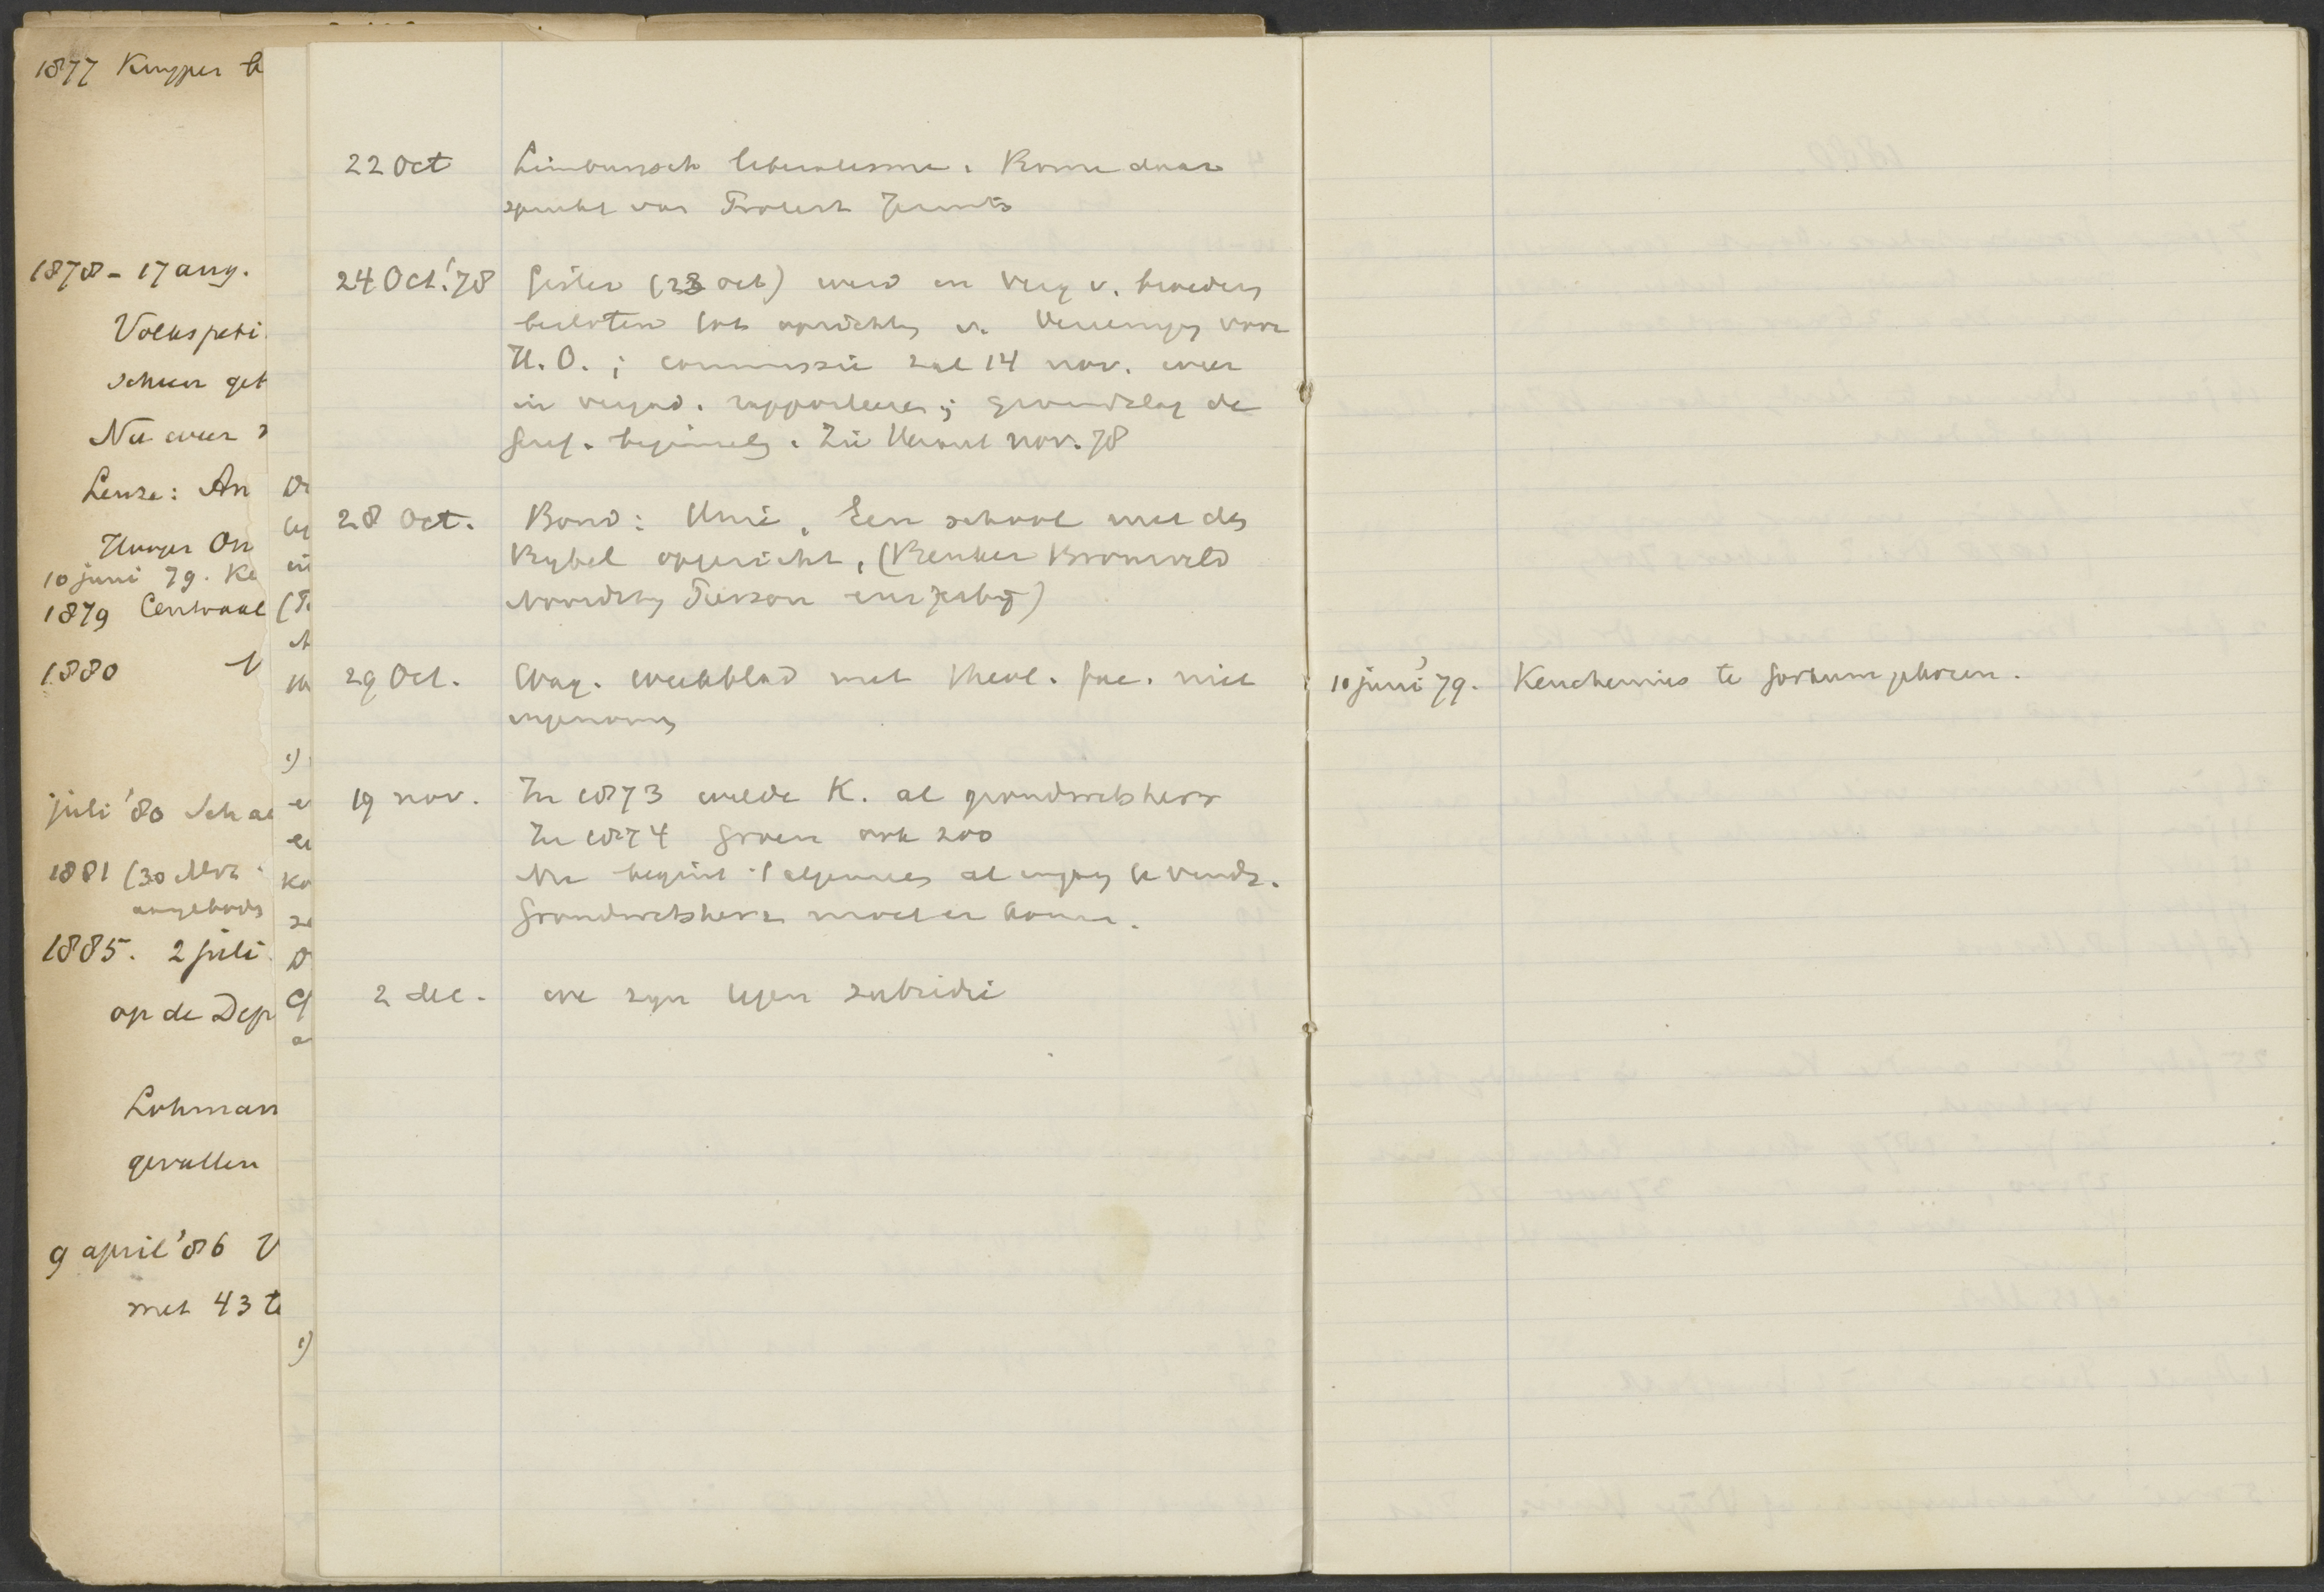 1877 Kuyper
1878 - 17 aug.
Volkspeti
Nu weer
Leuze: An
Hooger On
10 juni 79. Ke
1879 Centraal
1880
juli '80 Scha
1881 (30
1885. 2 juli
op de Dep
Lohman
gevallen
9 april '86 V
met 43 te
22 Oct Limbursch liberalisme. Rome daar
24 Oct. '78 Gister (23 oct) werd en verg v. broeders
besloten tot oprichtg v. Vereenigg voor
H. O. ; commissie zal 14 nov. weer
in vergad. rapporteeren; grondslag de
Geref. beginselg. Zie Heraut nov. 78
28 Oct. Bond: Unie. Een school met dg
Bybel opgericht. (Beuker Bronsveld
Noordtzy Pierson enz
29 Oct. Wag. weekblad met theol. fac. niet
ingenomg
19 nov. In 1873 wilde K. al grondwetsherz
In 1874 Groen ook zoo
Nu begint 't algemeen al ingang te vindg.
Grondwetsherz moet er komen.
2 dec. we zyn tegen subsidie
10 juni '79. Keuchenius te Gorkum gekozen.